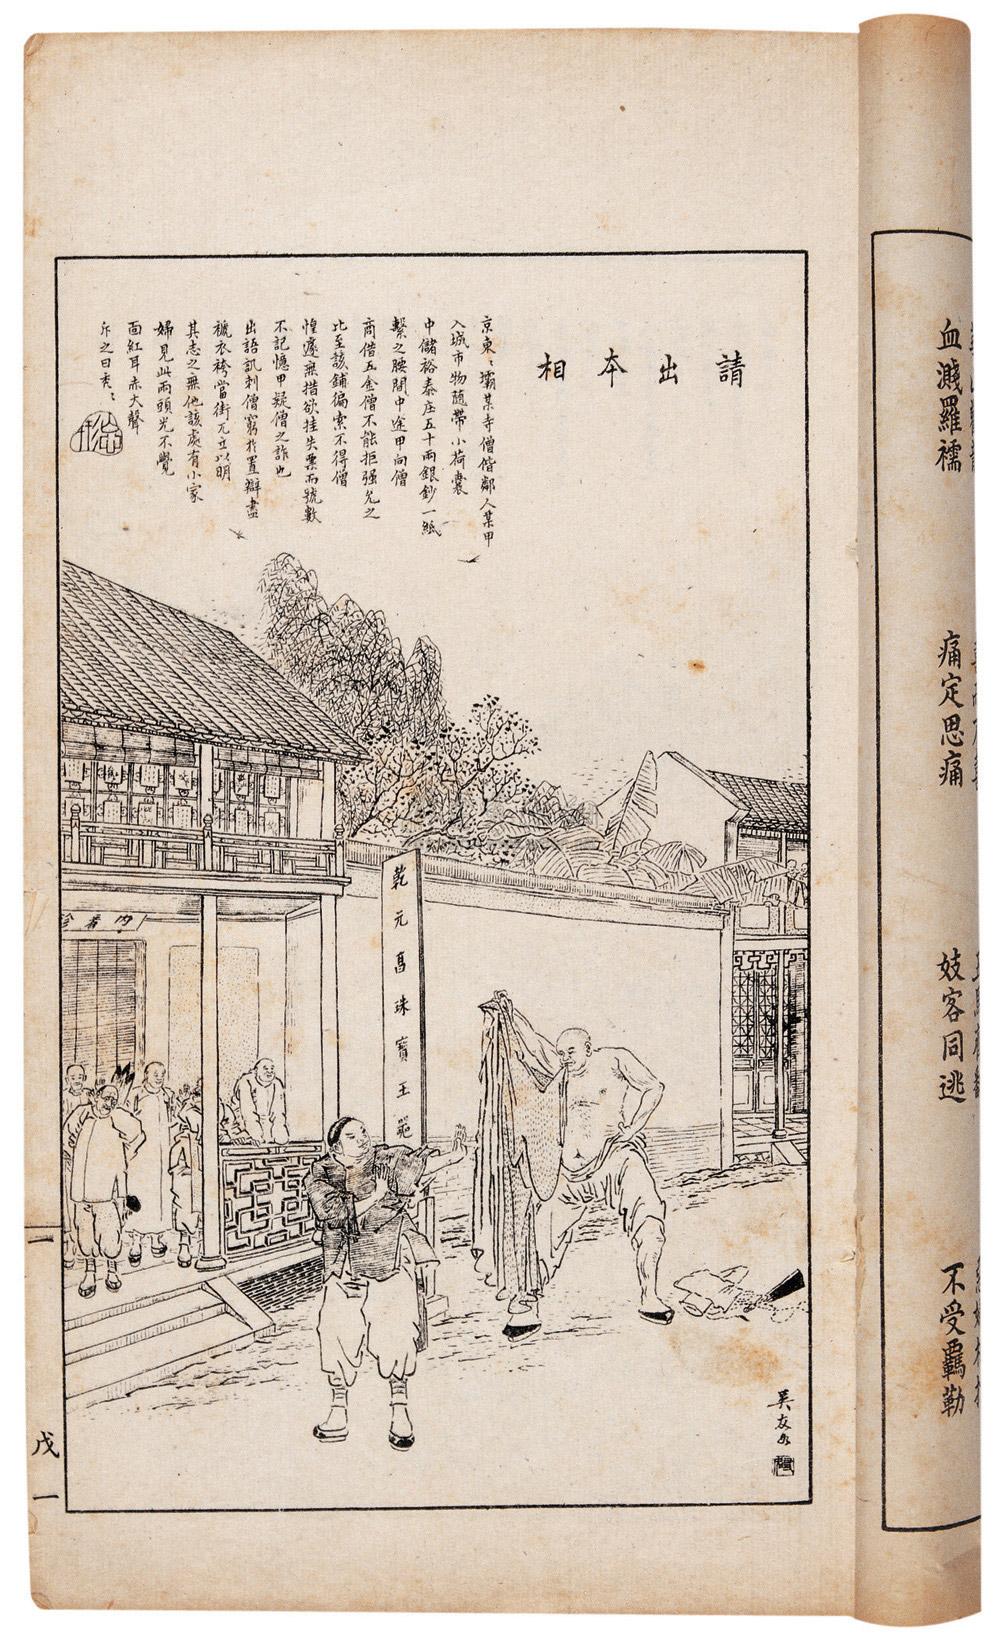 請出本相
京東〻壩某寺僧偕鄰人某甲
入城市物隨帶小荷囊
中儲裕泰庄五十兩銀鈔一紙
繫之腰間中途甲向僧
商借五金僧不能拒强允之
比至該鋪徧索不得僧
惶遽無措欲挂失票而號數
不記憶甲疑僧之詐也
出語譏刺僧窮於置辯盡
褫衣袴當街兀立以明
其志之無他該處有小家
婦見此兩頭光不覺
面紅耳赤大聲
斥之曰衰〻
乾元昌珠寶玉器
內看
吳友如
戊一
血濺羅襦
痛定思痛
妓客同逃
不受羈勒